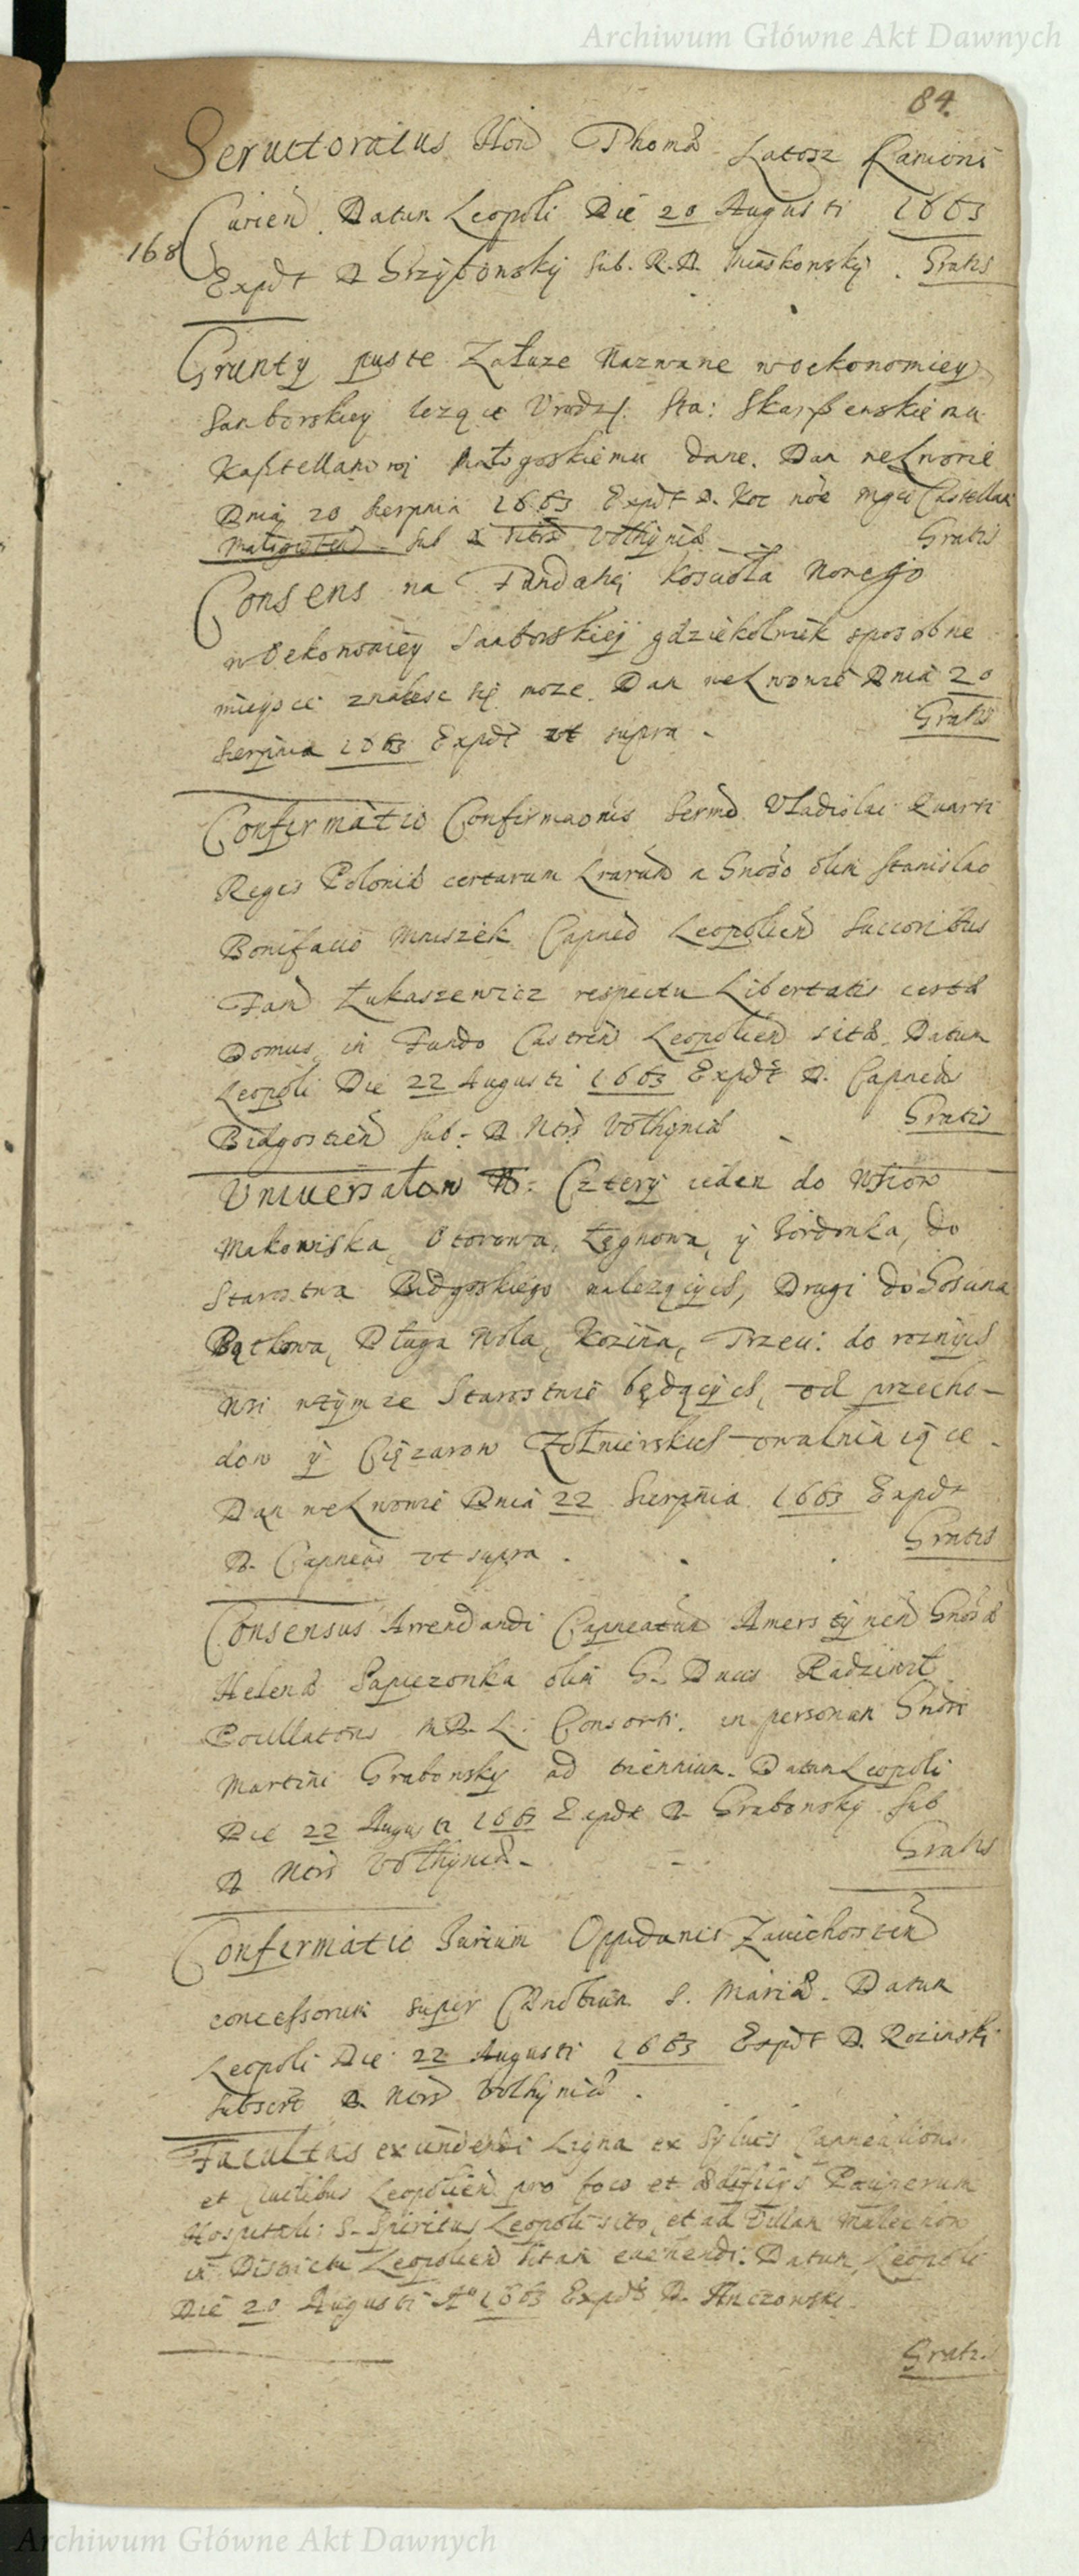 Archiwum Główne Akt Dawnych
84.
Servitoratus Hon Thomæ Latosz Lanioni
Curien. Datum Leopoli Die 20 Augusti 1663
168
Expdt D Grzybowsky sub. R. D. Miaskowsky. Gratis
Grunty puste Załuze Nazwane w oekonomiey
Samborskiey lezące Urodz. Sta: Skarszewskiemu
Kasztellanowi Małogoskiemu dane. Dan we Lwowie
Dnia 20 Sierpnia 1663 Expdt D. Koc nôe mgci Castellani
Malogosten sub D Ntrs Vothyniæ Gratis
Consens na Fundatię Koscioła Nowego
w Oekonomiey Samborskiey gdziekolwiek sposobne
mieysce znalesc się moze. Dan we Lwowie Dnia 20
Sierpnia 1663 Expdt ut supra. Gratis
Confirmatio Confirmaonis Sermi Vladislai Quarti
Regis Poloniæ certarum Lrarum a Gnoso olim Stanislao
Bonifacio Mniszek Capneo Leopolien Succoribus
Fam Łukaszewicz respectu Libertatis certæ
Domus in Fundo Castren Leopolien sitæ. Datum
Leopoli Die 22 Augusti 1663 Expdt D. Capneus
Bidgostien sub. D Ntrs Vothyniæ Gratis
Uniuersałow N: Cztery ieden do Wsiow
Makowiska, Otorowa, Łęgnowa, y Fordonka, do
Starostwa Bidgoskiego nalezących, Drugi do Goscina
Bątkowa, Długa Wola, Kozina, Trzeci: do roznych
Wsi w tymze Starostwie będących, od przecho-
dow y Cięzarow Zołnierskich uwalniaiące.
Dan we Lwowie Dnia 22 Sierpnia 1663 Expdt
D. Capneus ut supra. Gratis
Consensus Arrendandi Capneatum Amerstynen Gnosæ
Helenæ Sapiezonka olim G. Ducis Radziwił
Pocillatoris M. D. L: Consorti. in personam Gnosi
Martini Grabowsky ad triennium. Datum Leopoli
Die 22 Augusti 1663 Expdt D. Grabowsky sub
D Ntrs Vothyniæ. Gratis
Confirmatio Jurium Oppidanis Zawichosten
concessorum super Cænobium S. Mariæ. Datum
Leopoli Die 22 Augusti 1663 Expdt D. Rozinski
Subscrt D. Ntrs Vothyniæ.
Facultas excindendi Ligna ex Sylvis Capnealibus
et Civilibus Leopolien pro foco et ædificijs Pauperum
Hospitali: S. Spiritus Leopoli sito, et ad Villam Malechow
in Districtu Leopolien sitam euehendi. Datum Leopoli
Die 20 Augusti Ao 1663 Expdt D. Anczowski.
Gratis
Archiwum Główne Akt Dawnych